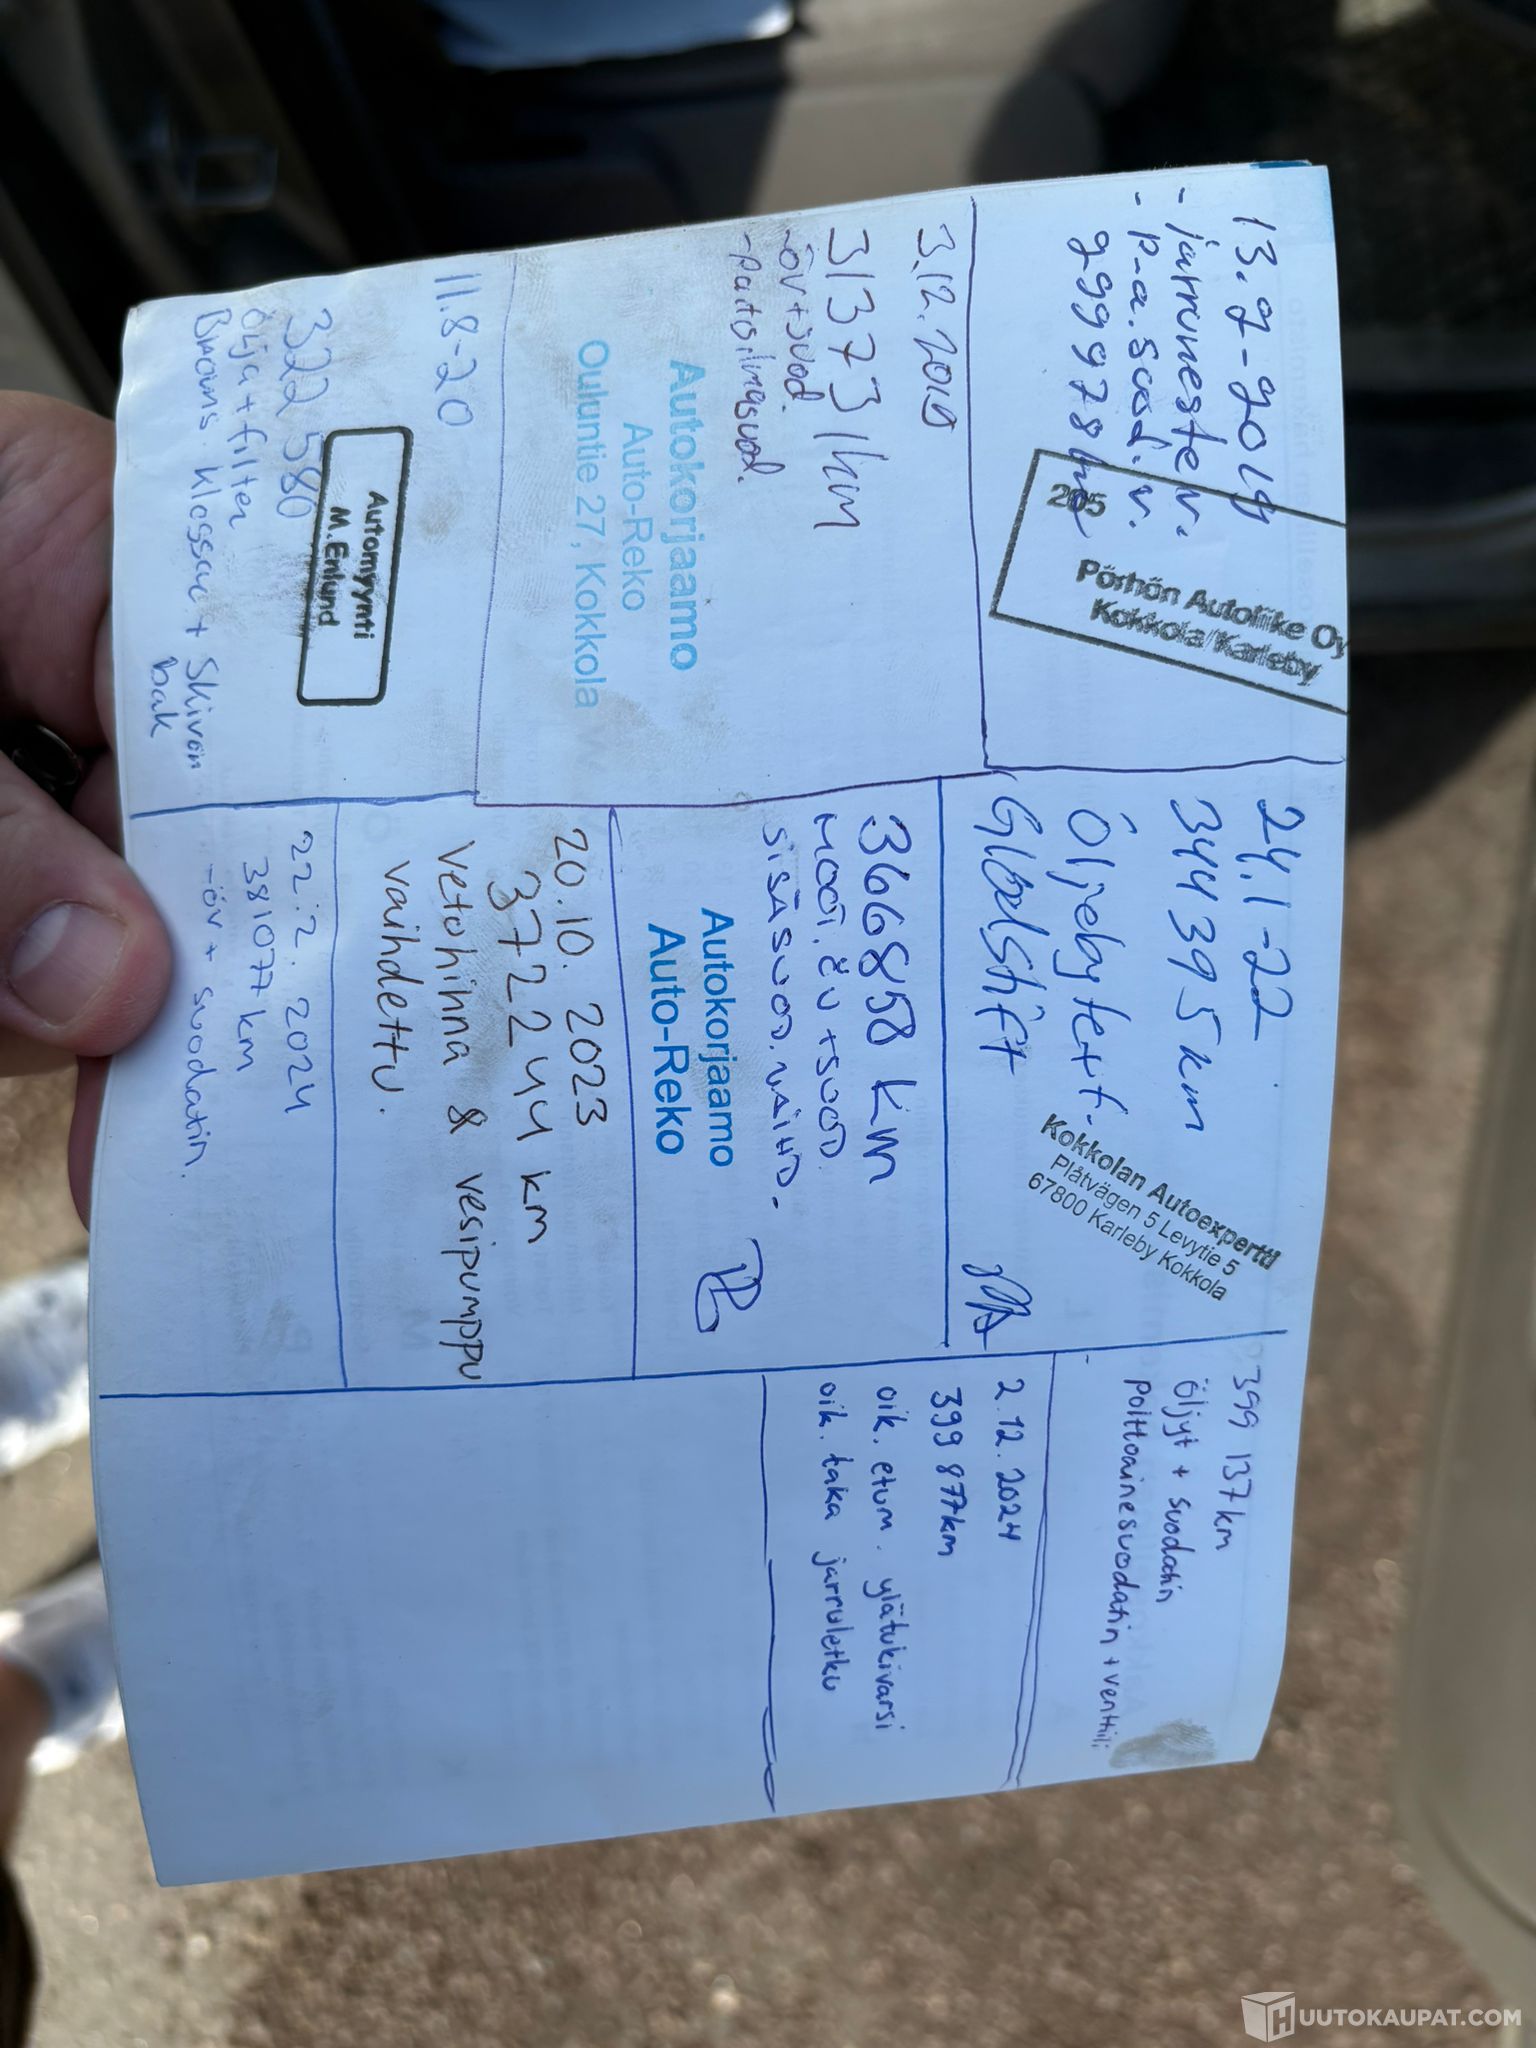 13.9-2018
- jarruneste v.
- p-a.suod.v.
299978km
205
Pörhön Autoliike Oy
Kokkola/Karleby
3.12.2019
313731km
-öv+suod.
-raitisilmasuod.
Autokorjaamo
Auto-Reko
Ouluntie 27, Kokkola
11.8-20
322 580
Automyynti
M.Enlund
Olja + filter
Broms klossar + Skivor
bak
24.1-22
344395km
Öljebytert.
Glödstift
Kokkolan Autoexpertti
Plåtvägen 5 Levytie 5
67800 Karleby Kokkola
366858 km
MOOT.ÖV+SUOD.
SISÄSUOD.VAIHD.
Autokorjaamo
Auto-Reko
20.10.2023
372244 km
vetohihna & vesipumppu
vaihdettu.
22.2.2024
381077 km
-öv + suodatin.
399 137km
öljyt + suodatin
polttoainesuodatin + venttiili
2.12.2024
399 877km
oik. etum. ylätukivarsi
oik. taka jarruletku
HUUTOKAUPAT.COM